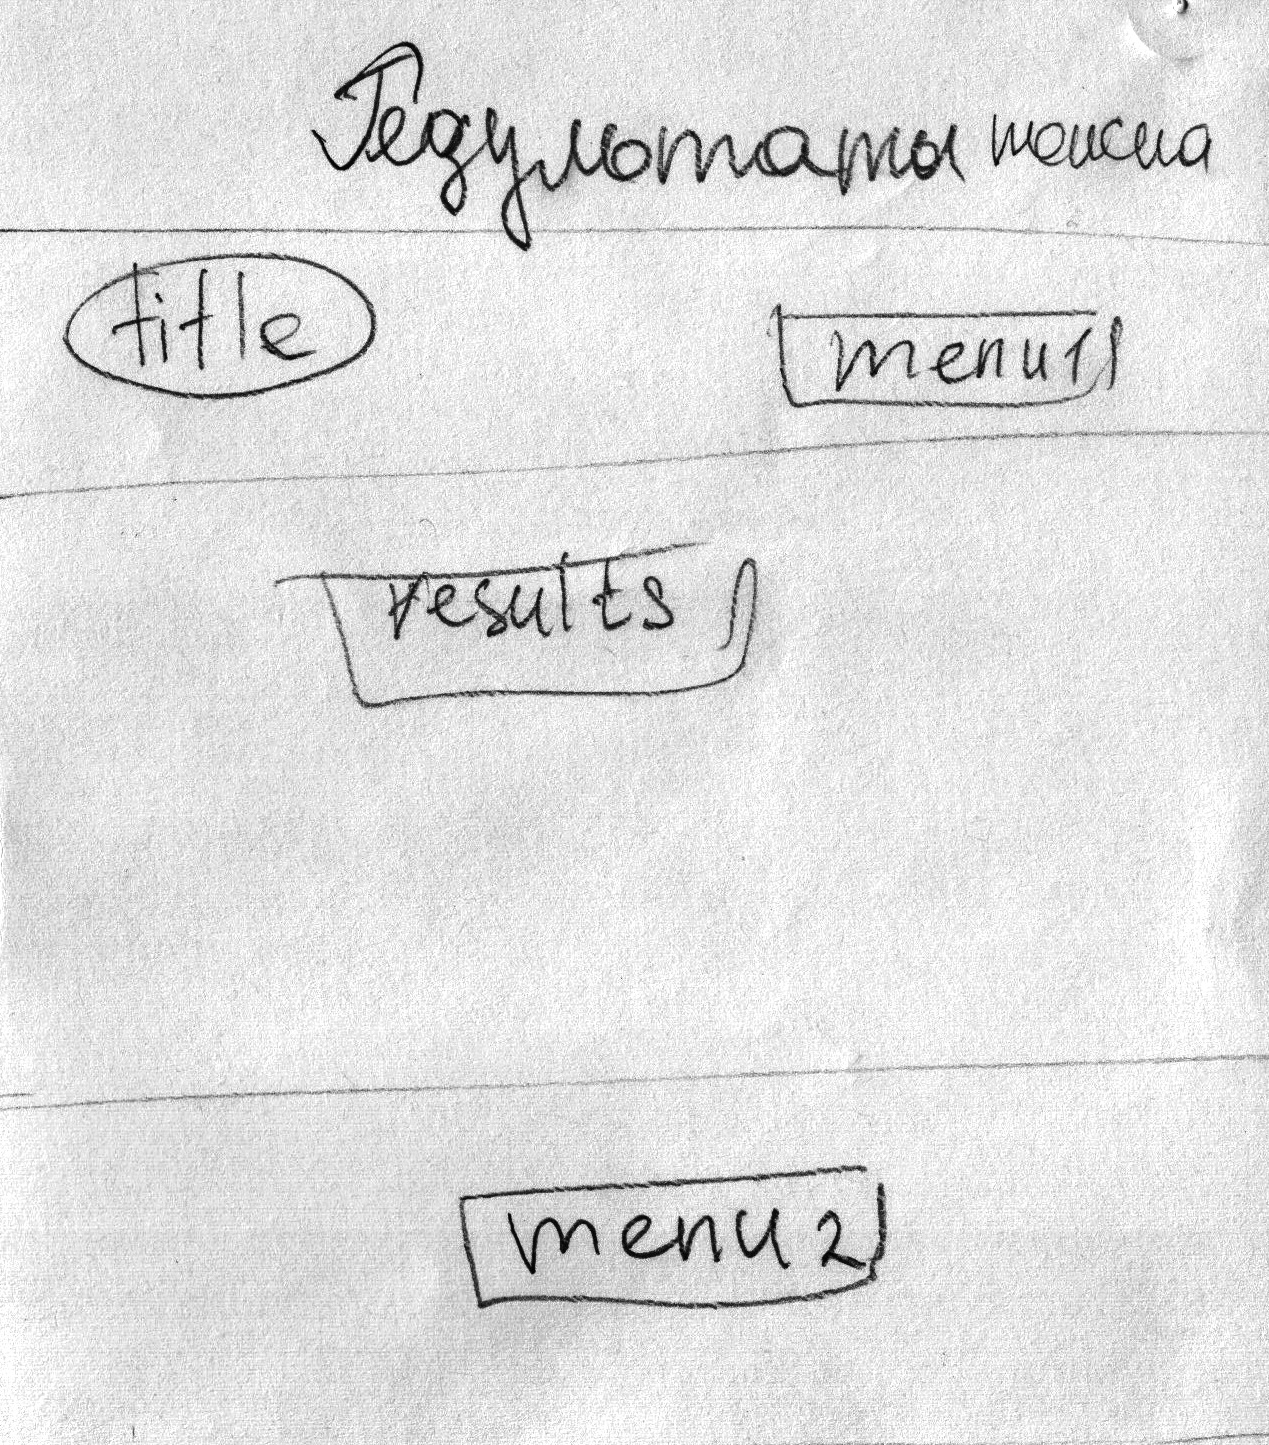 Результаты поиска
title
menu1
results
menu2